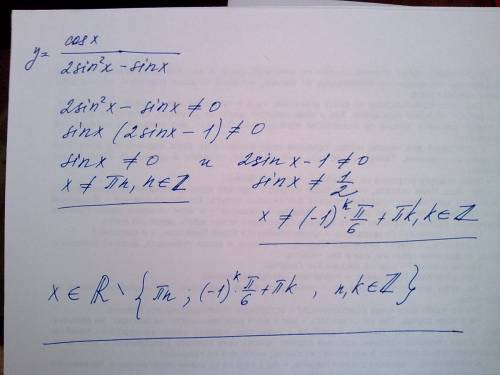 y = cosx / 2sin²x − sinx
2sin²x − sinx ≠ 0
sinx (2sinx − 1) ≠ 0
sinx ≠ 0 и 2sinx − 1 ≠ 0
x ≠ πn, n ∈ ℤ sinx ≠ 1/2
x ≠ (−1)ᵏ · π/6 + πk, k ∈ ℤ
x ∈ ℝ \ { πn ; (−1)ᵏ · π/6 + πk , n, k ∈ ℤ }